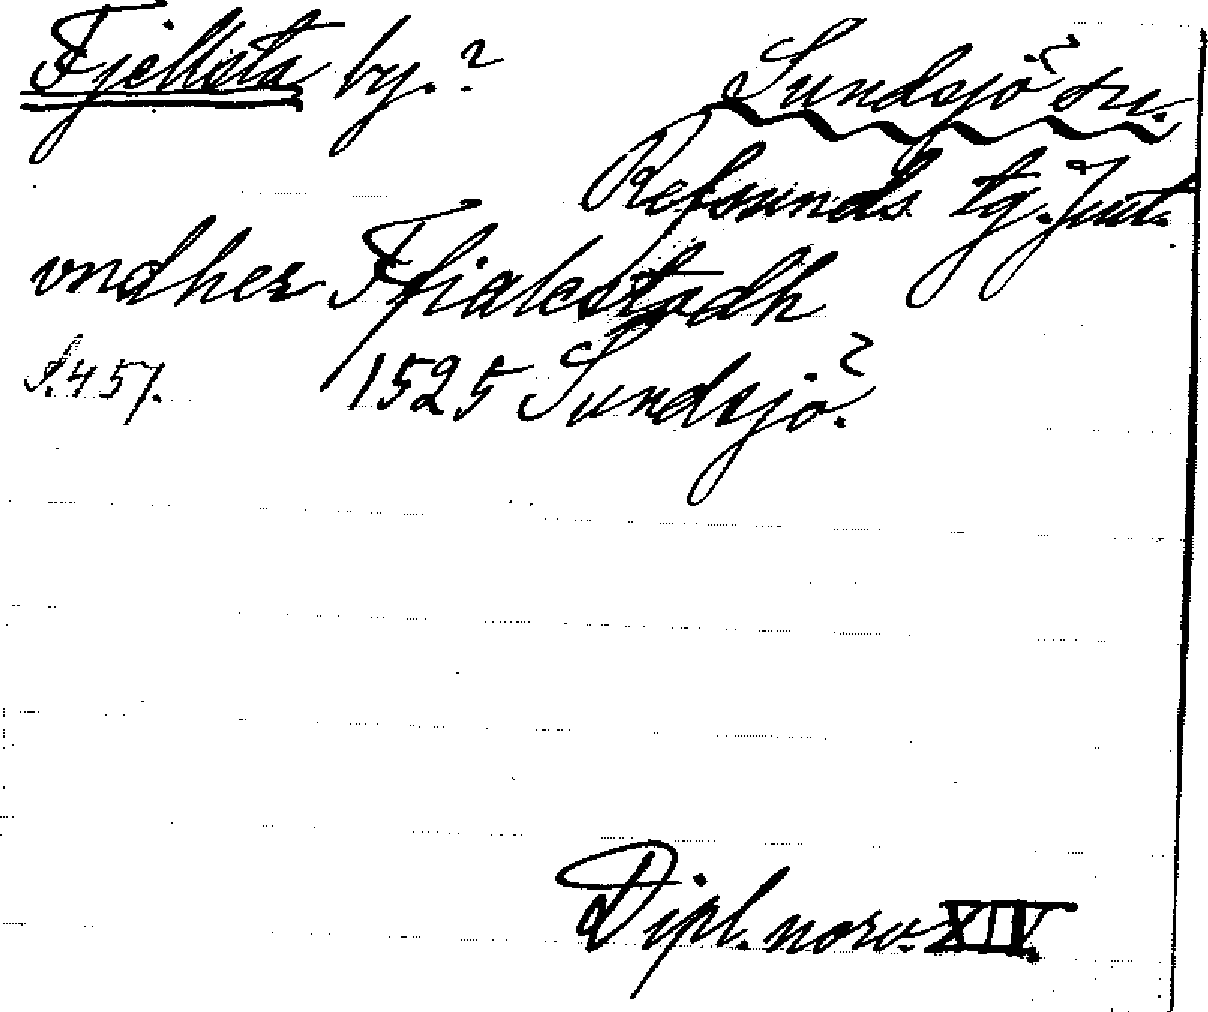 Fjellsta by.? Sundsjö? sn.
Refsunds tg. Jmt.
vndher Ffialestadh
S. 457. 1525 Sundsjö?.
Dipl. norv. XIV.